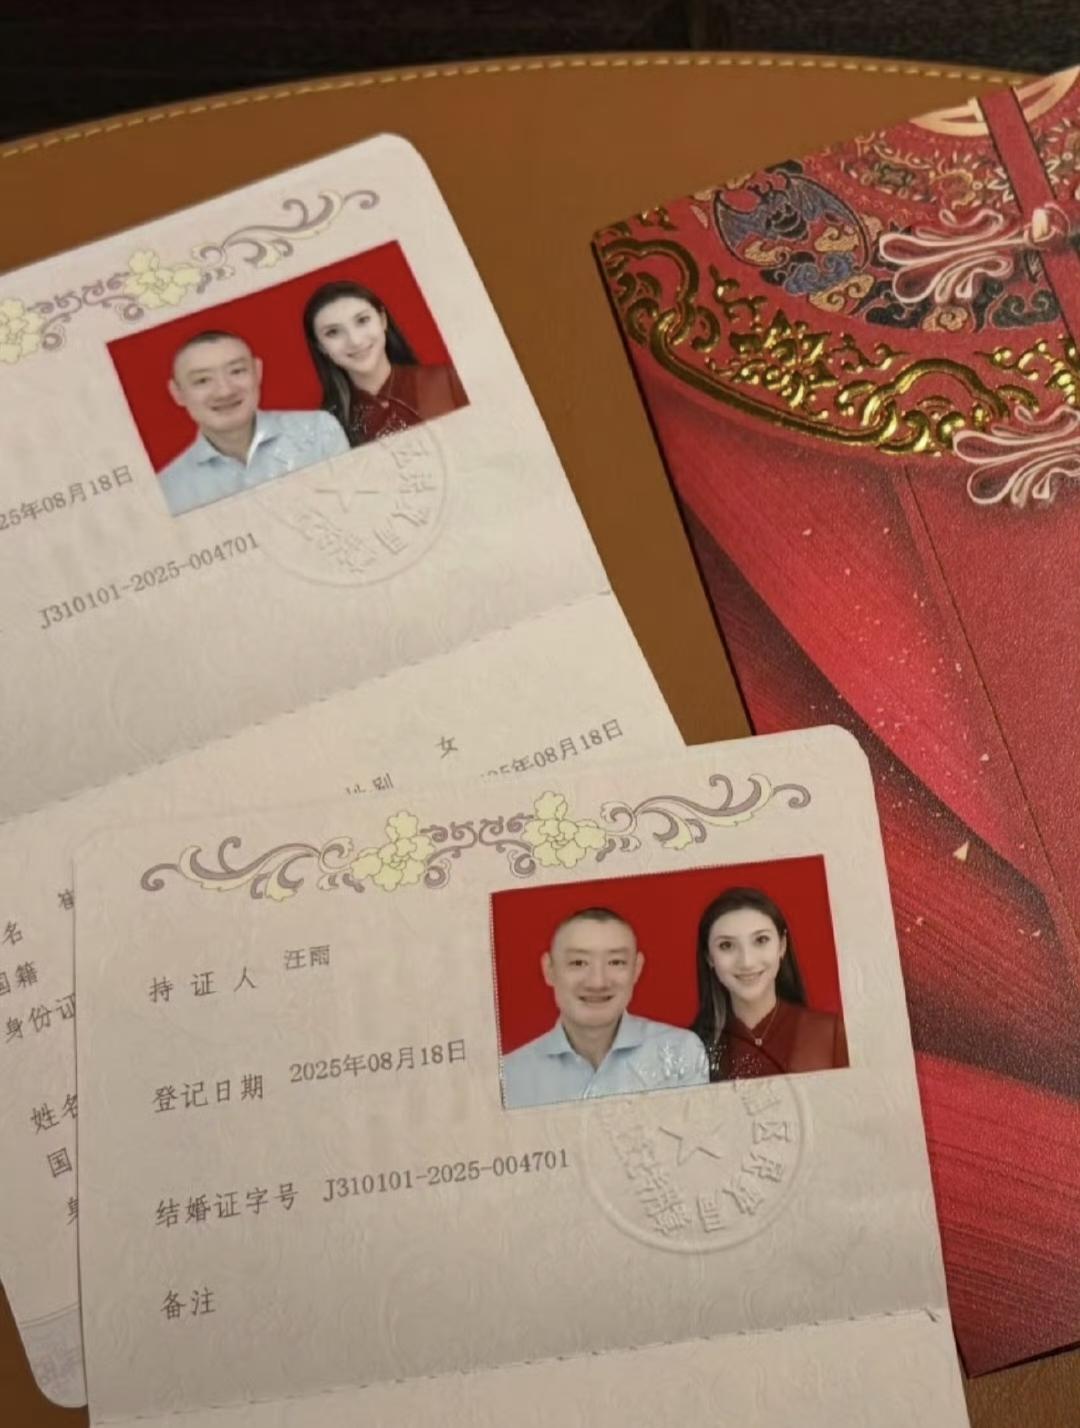 25年08月18日
J310101-2025-004701
女
性别
25年08月18日
名
国籍
身份证
姓名
国
持证人 汪雨
登记日期 2025年08月18日
结婚证字号 J310101-2025-004701
备注